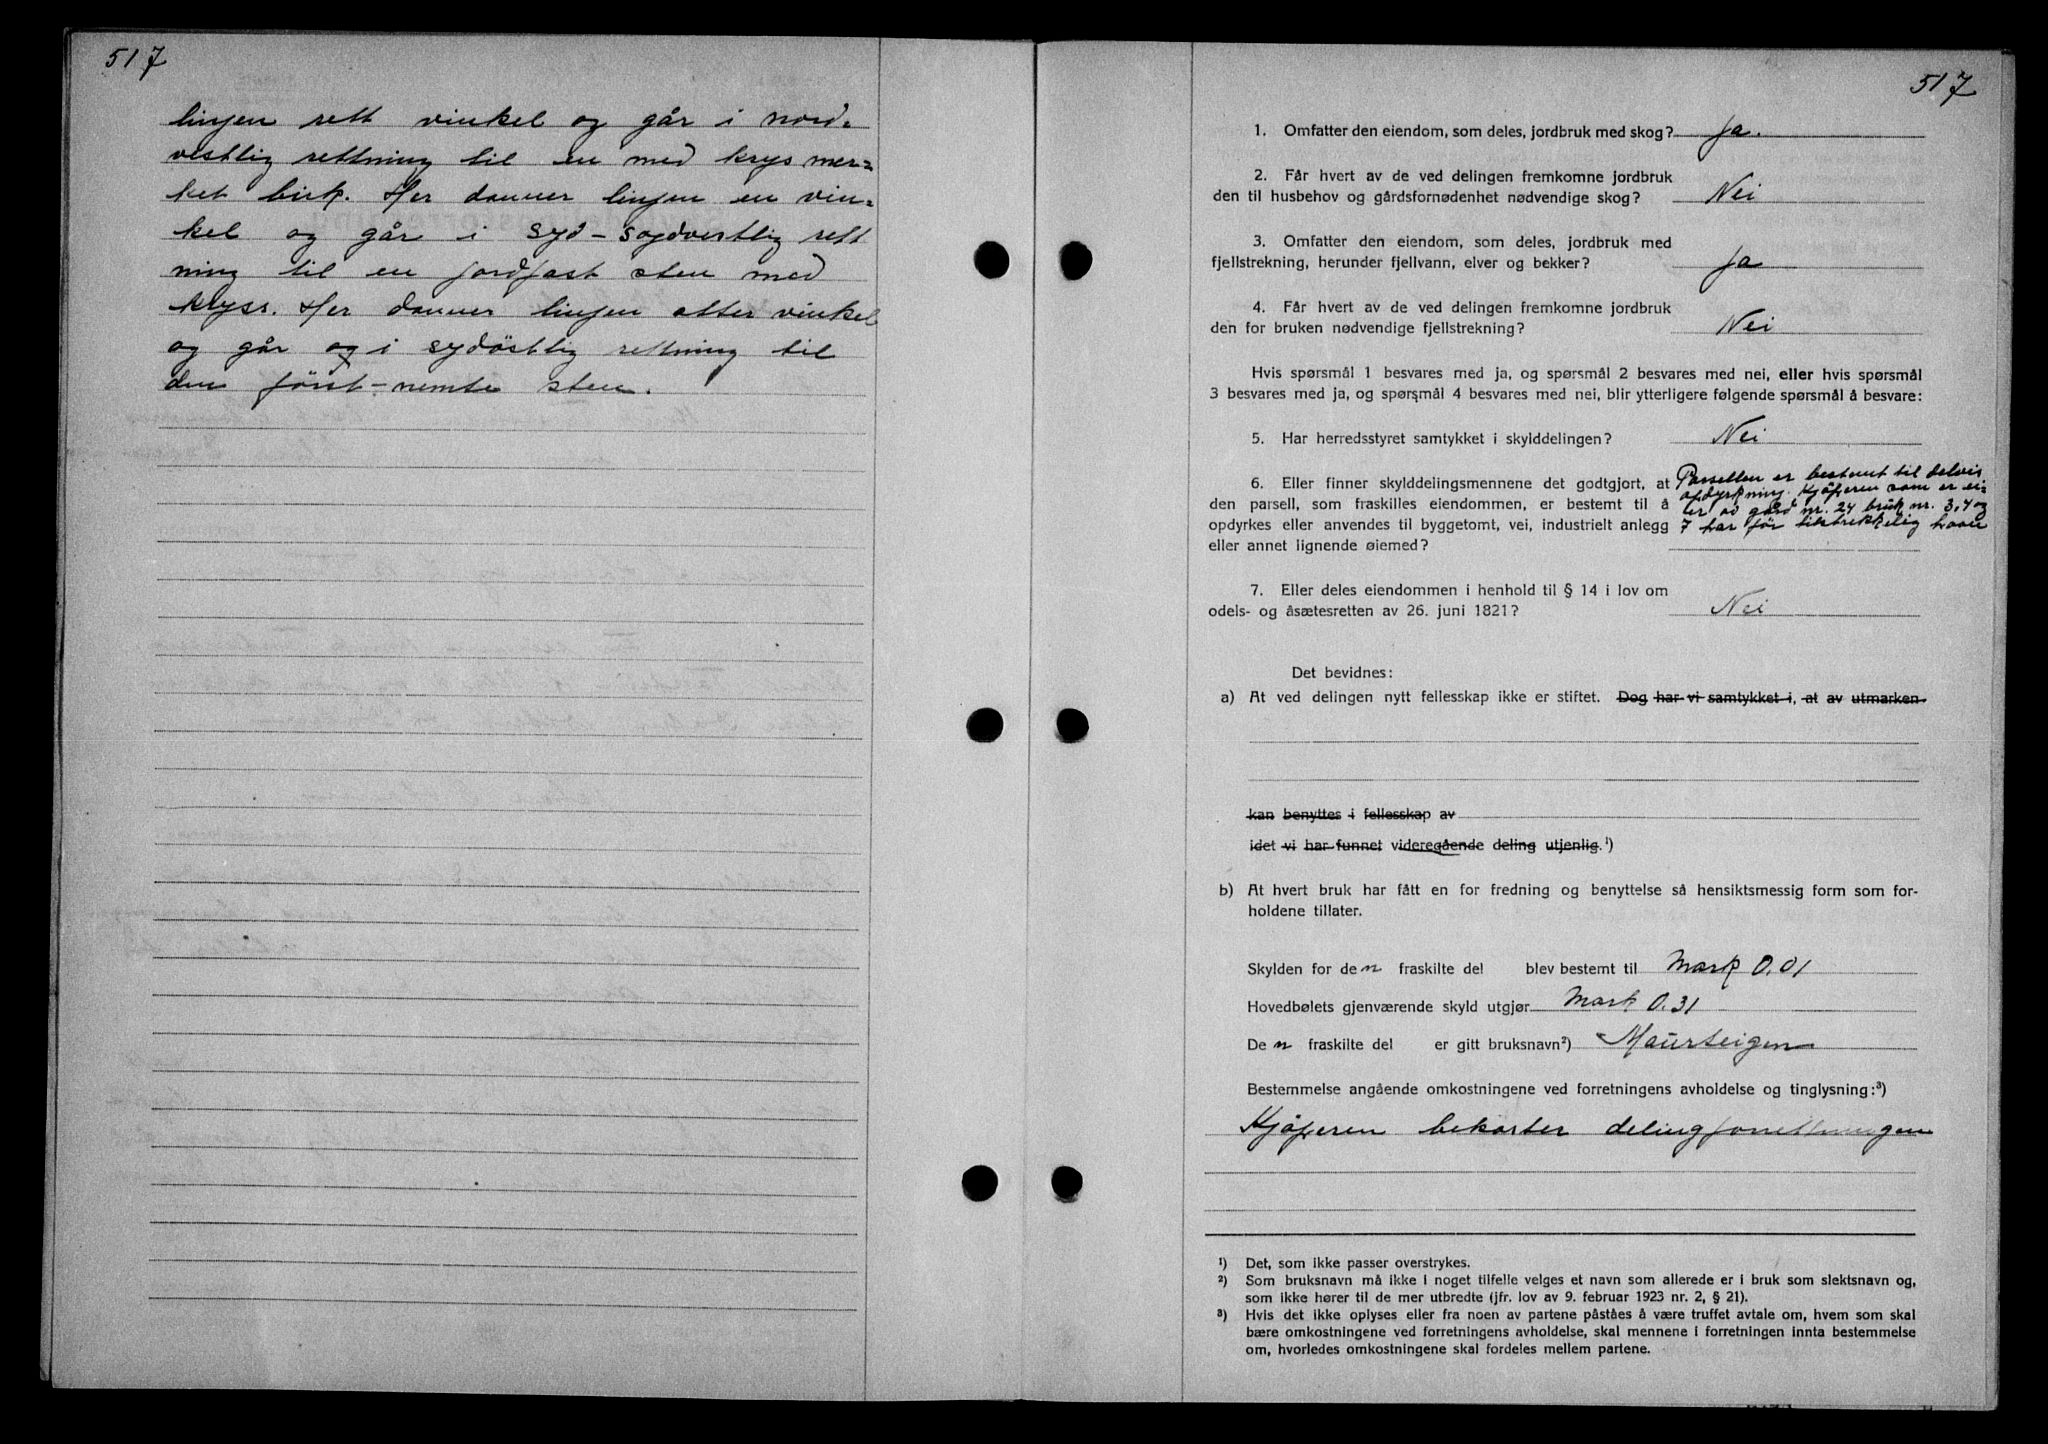 517
linjen rett vinkel og går i nord-
vestlig rettning til en med krys mer-
ket birk. Her danner linjen en vin-
kel og går i syd-sydvestlig rett
ning til en jordfast sten med
kryss. Her danner linjen atter vinkel
og går og i sydöstlig rettning til
den först-nemte sten.
517
1. Omfatter den eiendom, som deles, jordbruk med skog? Ja.
2. Får hvert av de ved delingen fremkomne jordbruk
den til husbehov og gårdsfornødenhet nødvendige skog? Nei
3. Omfatter den eiendom, som deles, jordbruk med
fjellstrekning, herunder fjellvann, elver og bekker? Ja
4. Får hvert av de ved delingen fremkomne jordbruk
den for bruken nødvendige fjellstrekning? Nei
Hvis spørsmål 1 besvares med ja, og spørsmål 2 besvares med nei, eller hvis spørsmål
3 besvares med ja, og spørsmål 4 besvares med nei, blir ytterligere følgende spørsmål å besvare:
5. Har herredsstyret samtykket i skylddelingen? Nei
6. Eller finner skylddelingsmennene det godtgjort, at
den parsell, som fraskilles eiendommen, er bestemt til å
opdyrkes eller anvendes til byggetomt, vei, industrielt anlegg
eller annet lignende øiemed?
Parsellen er bestemt til delvis
opdyrkning. Kjöperen som er ei-
er av gård nr. 24 bruk nr. 3,4 og
7 har før tilstrekkelig havn
7. Eller deles eiendommen i henhold til § 14 i lov om
odels- og åsætesretten av 26. juni 1821? Nei
Det bevidnes:
a) At ved delingen nytt fellesskap ikke er stiftet. Dog har vi samtykket i, at av utmarken
kan benyttes i fellesskap av
idet vi har funnet videregående deling utjenlig.¹)
b) At hvert bruk har fått en for fredning og benyttelse så hensiktsmessig form som for-
holdene tillater.
Skylden for den fraskilte del blev bestemt til Mark 0.01
Hovedbølets gjenværende skyld utgjør Mark 0.31
Den fraskilte del er gitt bruksnavn²) Maurteigen
Bestemmelse angående omkostningene ved forretningens avholdelse og tinglysning:³)
Kjöperen bekoster delingforrettningen
¹) Det, som ikke passer overstrykes.
²) Som bruksnavn må ikke i noget tilfelle velges et navn som allerede er i bruk som slektsnavn og,
som ikke hører til de mer utbredte (jfr. lov av 9. februar 1923 nr. 2, § 21).
³) Hvis det ikke oplyses eller fra noen av partene påståes å være truffet avtale om, hvem som skal
bære omkostningene ved forretningens avholdelse, skal mennene i forretningen innta bestemmelse
om, hvorledes omkostningene skal fordeles mellem partene.